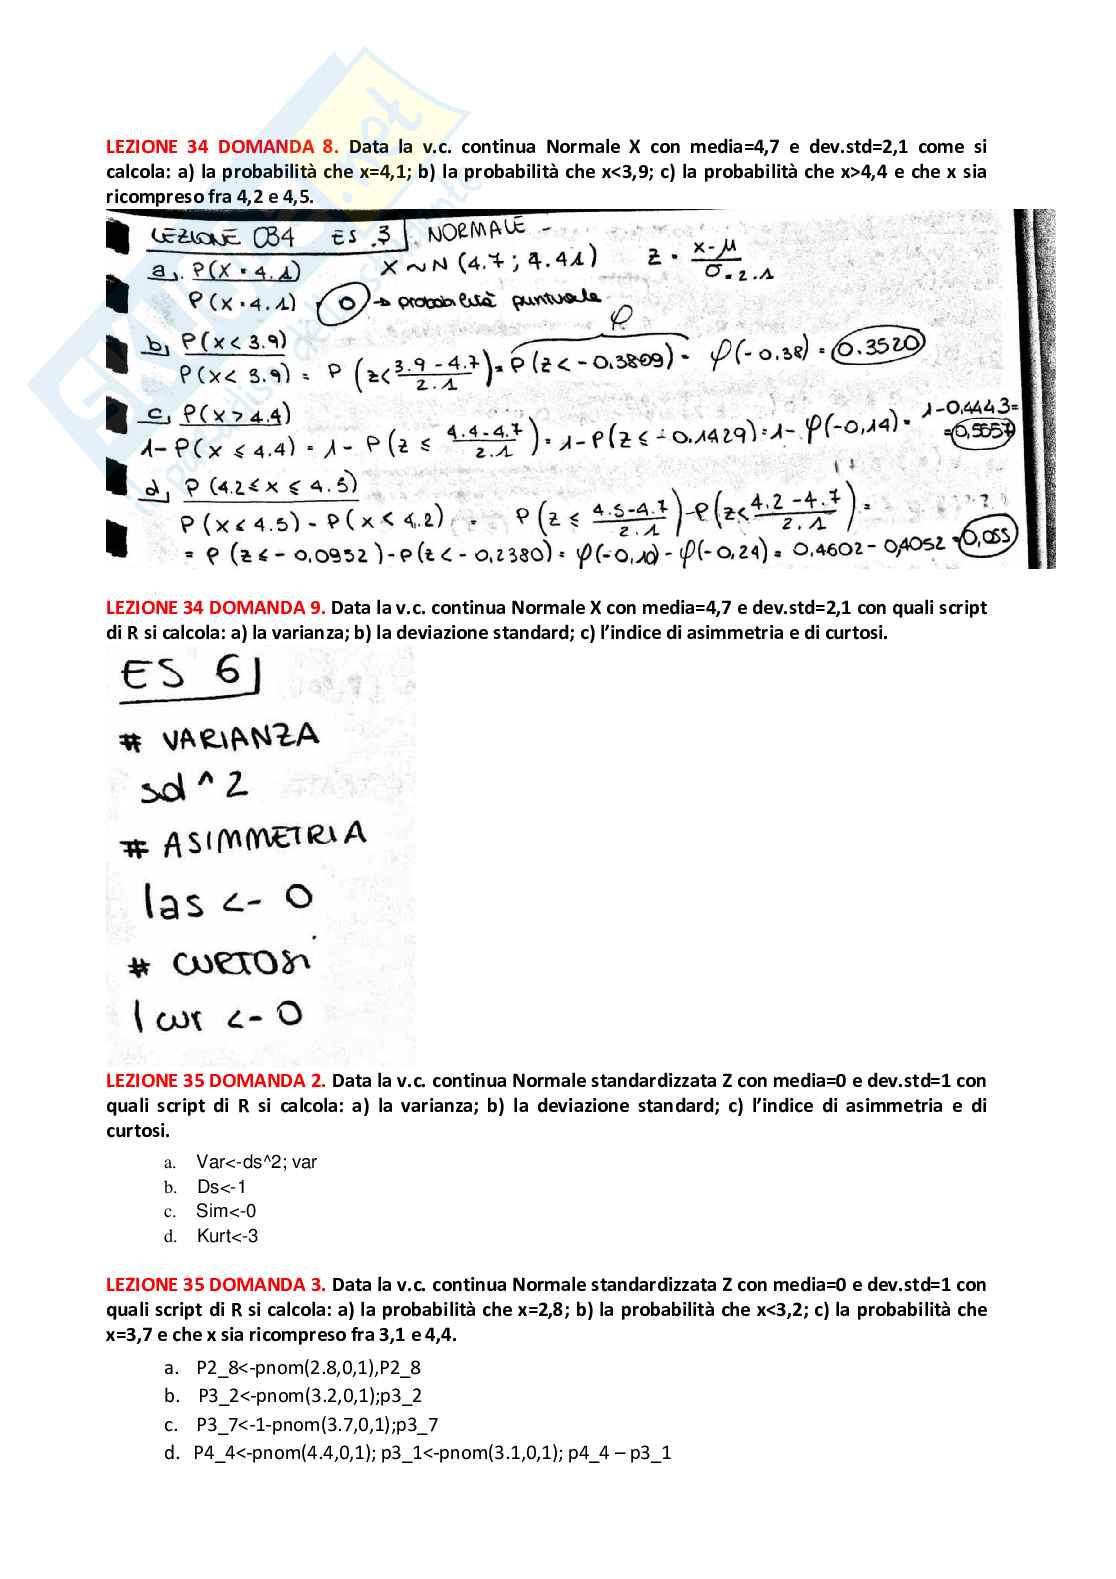 LEZIONE 34 DOMANDA 8. Data la v.c. continua Normale X con media=4,7 e dev.std=2,1 come si
calcola: a) la probabilità che x=4,1; b) la probabilità che x<3,9; c) la probabilità che x>4,4 e che x sia
ricompreso fra 4,2 e 4,5.
LEZIONE 034 ES .3 NORMALE -
a). P(X=4.1) X~N(4.7; 4.41) Z = x-μ / σ = 2.1
P(X=4.1) = 0 → probabilità puntuale
b) P(x<3.9) φ
P(x<3.9) = P(z< 3.9-4.7 / 2.1) = P(z<-0.3809) = φ(-0.38) = 0.3520
c) P(x>4.4)
1-P(x⩽4.4) = 1-P(z⩽ 4.4-4.7 / 2.1) = 1-P(z⩽-0.1429) = 1-φ(-0,14) = 1-0,4443= =0,5557
d) P(4.2⩽x⩽4.5)
P(x⩽4.5) - P(x<4.2) = P(z⩽ 4.5-4.7 / 2.1) - P(z< 4.2-4.7 / 2.1) =
= P(z⩽-0,0952) - P(z<-0,2380) = φ(-0,10) - φ(-0,24) = 0,4602-0,4052 = 0,055
LEZIONE 34 DOMANDA 9. Data la v.c. continua Normale X con media=4,7 e dev.std=2,1 con quali script
di R si calcola: a) la varianza; b) la deviazione standard; c) l’indice di asimmetria e di curtosi.
ES 6
# VARIANZA
sd^2
# ASIMMETRIA
Ias <- 0
# CURTOSI
Icur <- 0
LEZIONE 35 DOMANDA 2. Data la v.c. continua Normale standardizzata Z con media=0 e dev.std=1 con
quali script di R si calcola: a) la varianza; b) la deviazione standard; c) l’indice di asimmetria e di
curtosi.
a. Var<-ds^2; var
b. Ds<-1
c. Sim<-0
d. Kurt<-3
LEZIONE 35 DOMANDA 3. Data la v.c. continua Normale standardizzata Z con media=0 e dev.std=1 con
quali script di R si calcola: a) la probabilità che x=2,8; b) la probabilità che x<3,2; c) la probabilità che
x=3,7 e che x sia ricompreso fra 3,1 e 4,4.
a. P2_8<-pnom(2.8,0,1),P2_8
b. P3_2<-pnom(3.2,0,1);p3_2
c. P3_7<-1-pnom(3.7,0,1);p3_7
d. P4_4<-pnom(4.4,0,1); p3_1<-pnom(3.1,0,1); p4_4 – p3_1